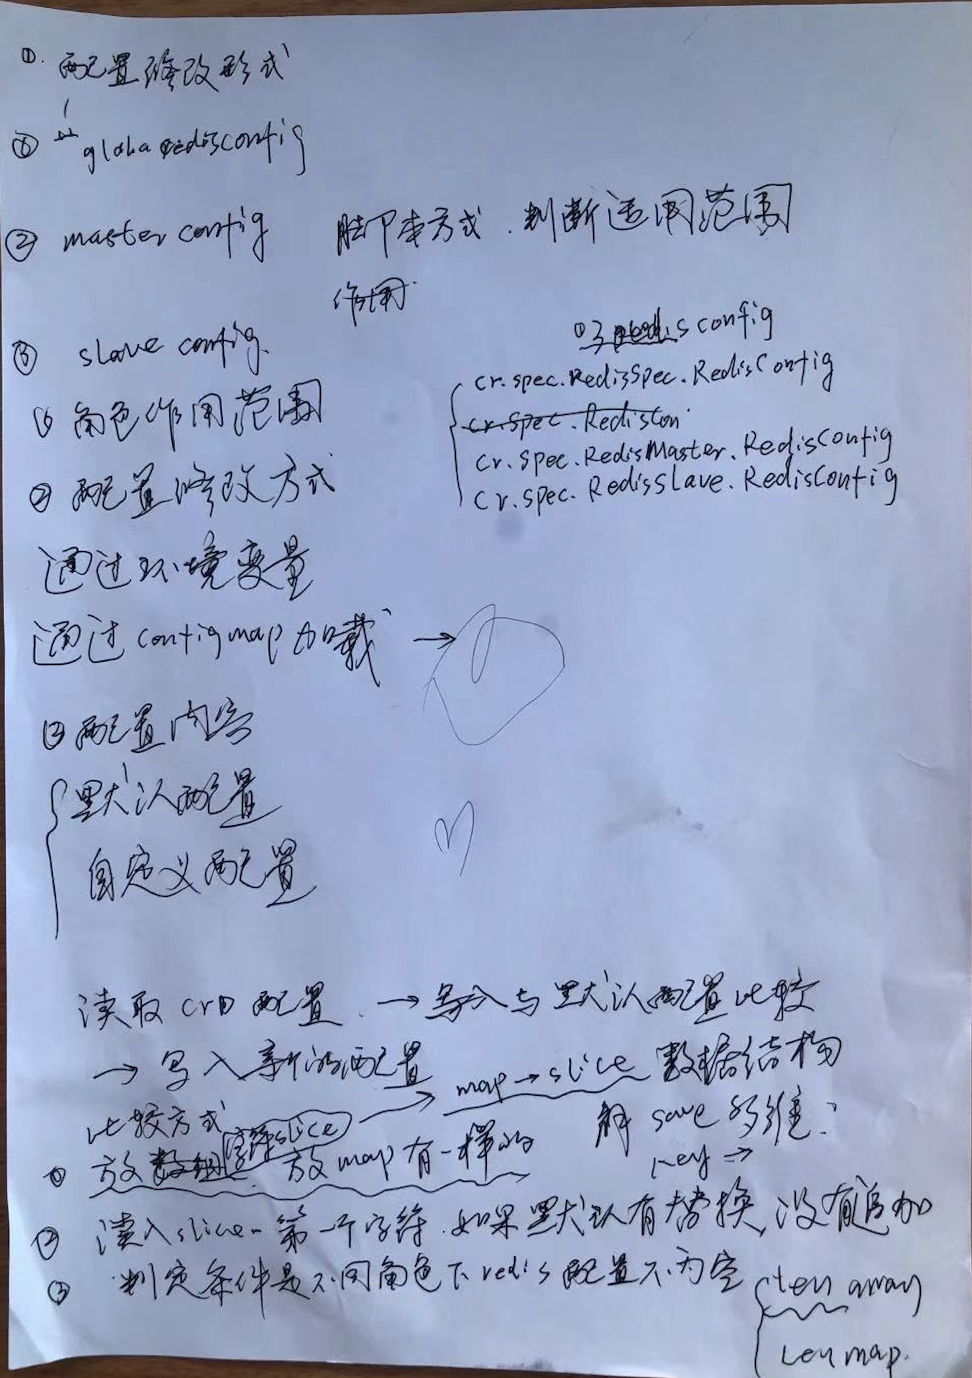 ①. 配置修改形式
① global redisconfig
② master config 脚本方式. 判断适用范围
作用.
③ slave config.
redis config
cr.spec.RedisSpec.RedisConfig
① 角色作用范围
cr.spec.RedisCon
cr.spec.RedisMaster.RedisConfig
② 配置修改方式
cr.spec.RedisSlave.RedisConfig
通过环境变量
通过configmap加载 →
③ 配置内容
默认配置
自定义配置
读取 CRD 配置. → 导入与默认配置比较
→ 写入新的配置
map → slice 数据结构
比较方式
解 save 多维:
① 放数组 字符slice 放map有一样的
key ⇒
② 读入slice 第一个字符.如果默认有替换,没有追加
③ 判定条件是不同角色下redis配置不为空
len array
len map.